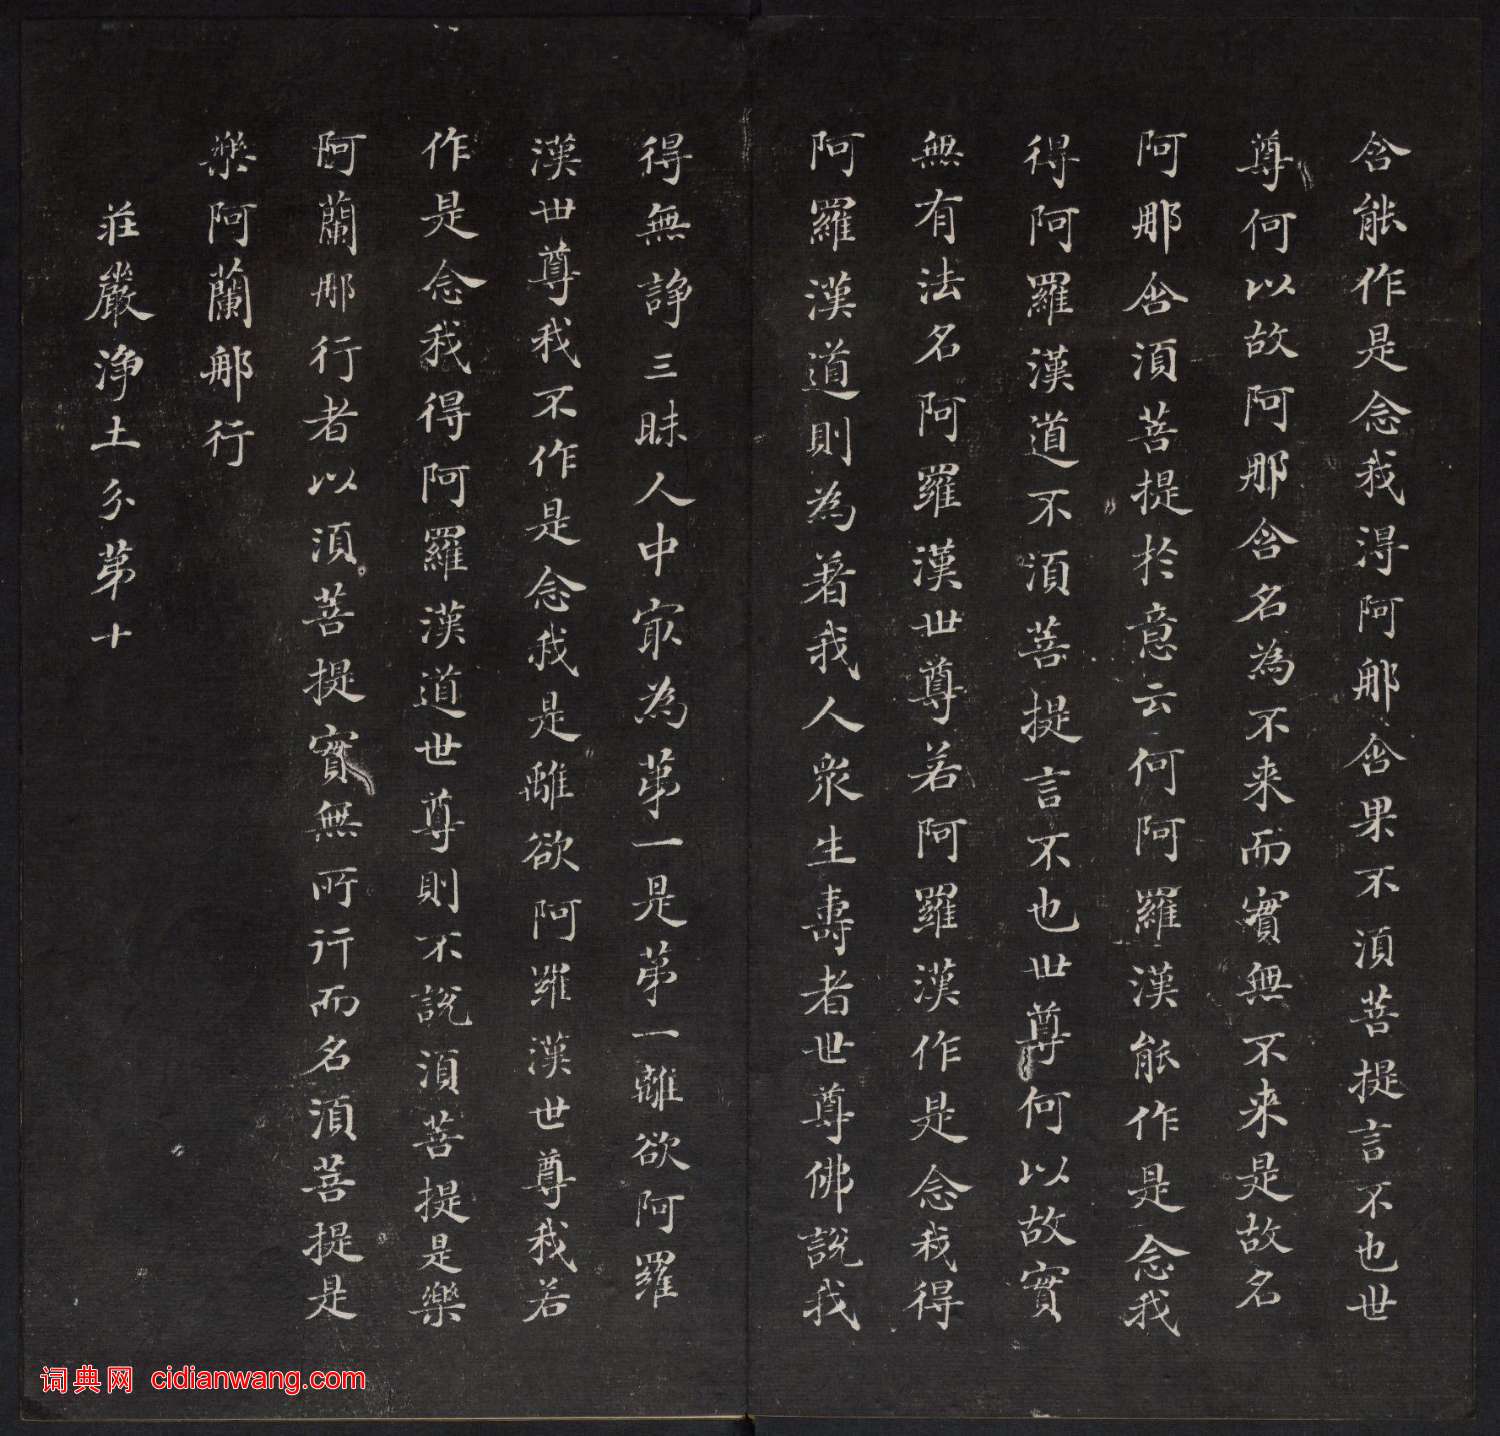 含能作是念我得阿那含果不須菩提言不也世
尊何以故阿那含名為不来而實無不来是故名
阿那含須菩提於意云何阿羅漢能作是念我
得阿羅漢道不須菩提言不也世尊何以故實
無有法名阿羅漢世尊若阿羅漢作是念我得
阿羅漢道則為著我人衆生壽者世尊佛說我
得無諍三昧人中㝡為第一是第一離欲阿羅
漢世尊我不作是念我是離欲阿羅漢世尊我若
作是念我得阿羅漢道世尊則不說須菩提是樂
阿蘭那行者以須菩提實無所行而名須菩提是
樂阿蘭那行
莊嚴淨土分第十
词典网 cidianwang.com